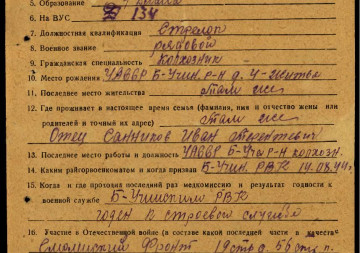 5. Образование
6. На ВУС 134
7. Должностная квалификация Стрелок
8. Военное звание рядовой
9. Гражданская специальность Колхозник
10. Место рождения УАССР Б-Учин. р-н д.
11. Последнее место жительства там же
12. Где проживает в настоящее время семья (фамилия, имя и отчество жены или
родителей и точный их адрес) там же
Отец Санников Иван
13. Последнее место работы и должность УАССР Б-Уч р-н колхозн.
14. Каким райгорвоенкоматом и когда призван Б-Учин. РВК 14.08.44г.
15. Когда и где проходил последний раз медкомиссию и результат годности к
военной службе Б-Учинским РВК
годен к строевой службе
16. Участие в Отечественной войне (в составе какой последней части в качестве
фронт 19 стр д. 56 стр. п.